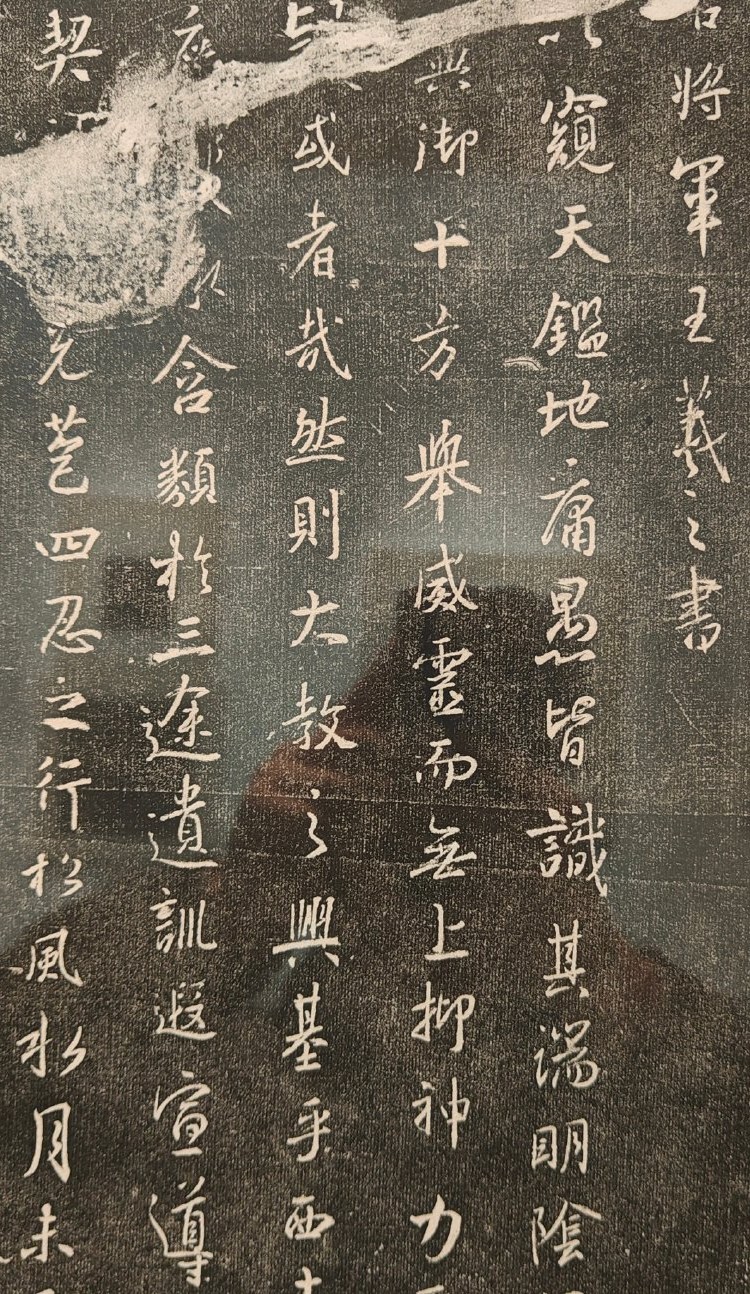 右將軍王羲之書
以窺天鑑地庸愚皆識其端明陰
典御十方舉威靈而無上抑神力
或者哉然則大教之興基乎西土
含類於三途遺訓遐宣導
契 先苞四忍之行松風水月未